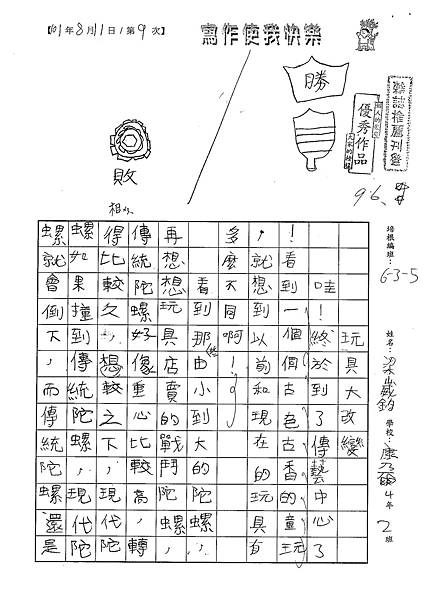 【101年8月11日/第9次】
寫作使我快樂
勝
敗
優秀作品
9.6.
培根編班：63-5
學校：康乃爾4年2班
玩具大改變
哇！終於到了傳藝中心了
！看到一個個古色古香的童玩
，就想到以前和現在的玩具有
多麼不同啊！
看到那由小到大的陀螺，
再想想玩具店賣的戰鬥陀螺，
傳統陀螺好像重心比較高，轉
得比較久，想較之下，現代陀
螺如果撞到傳統陀螺，現代陀
螺就會倒下，而傳統陀螺還是